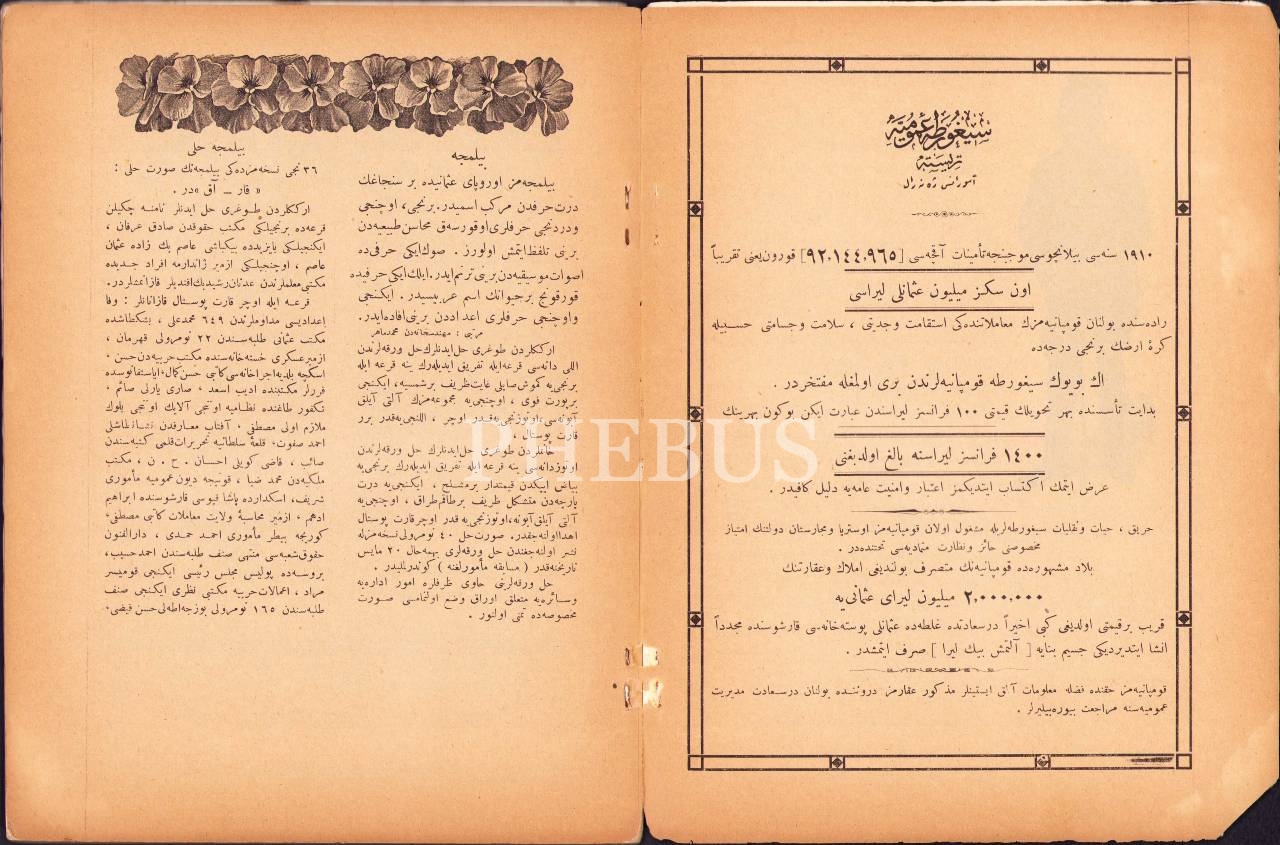 سیغورطهٔ عمومیه
تریسته
آسورانس ژه نه رال
١٩١٠ سنه سی بیلانچوسی موجبنجه تأمینات آقچه سی [٩٢،١٤٤،٩٦٥] قورون یعنی تقریباً
اون سکز میلیون عثمانلی لیراسی
راده سنده بولنان قومپانیه مزك معاملاتنده کی استقامت وجدیتی ، سلامت وجسامتی حسبیله
کرهٔ ارضك برنجی درجه ده
اك بویوك سیغورطه قومپانیه لرندن بری اولمغله مفتخردر .
بدایت تأسسنده بهر تحویلك قیمتی ١٠٠ فرانسز لیراسندن عبارت ایکن بوکون بهرینك
١٤٠٠ فرانسز لیراسنه بالغ اولدیغنی
عرض ایتمك اکتساب ایتدیکمز اعتبار وامنیت عامه یه دلیل کافیدر .
حریق ، حیات ونقلیات سیغورطه لریله مشغول اولان قومپانیه مز اوستریا ومجارستان دولتنك امتیاز
مخصوصنی حائز ونظارت متمادیه سی تحتنده در .
بلاد مشهوره ده قومپانیه نك متصرف بولندیغی املاك وعقارتنك
٢،٠٠٠،٠٠٠ میلیون لیرای عثمانی یه
قریب برقیمتی اولدیغی کبی اخیراً درسعادتده غلطه ده عثمانلی پوسته خانه سی قارشوسنده مجدداً
انشا ایتدیردیکی جسیم بنایه [ آلتمش بیك لیرا ] صرف ایتمشدر .
قومپانیه مز حقنده فضله معلومات آلق ایستینلر مذکور عقارمز دروننده بولنان درسعادت مدیریت
عمومیه سنه مراجعت بیوره بیلیرلر .
بیلمجه
بیلمجه مز اوروپای عثمانیده بر سنجاغك
درت حرفدن مرکب اسمیدر . برنجی ، اوچنجی
ودردنجی حرفلری اوقورسه ق محاسن طبیعیه دن
برینی تلفظ ایتمش اولورز . صوك ایکی حرفی ده
اصوات موسیقیه دن برینی ترنم ایدر . ایلك ایکی حرفیده
قورقونج برحیوانك اسم عربیسیدر . ایکنجی
واوچنجی حرفلری اعداددن برینی افاده ایدر .
مرتبی : مهندسخانه دن محمدماهر
ارککلردن طوغری حل ایدنلرك حل ورقه لرندن
اللی دانه سی قرعه ایله تفریق ایدیله رك ینه قرعه ایله
برنجی یه کموش صاپلی غایت ظریف برشمسیه ، ایکنجی یه
برپورت فوی ، اوچنجی یه مجموعه مزك آلتی آیلق
آبونه سی ، اوتوزنجی یه قدر اوچر ، اللنجی یه قدر برر
قارت پوستال
خانملردن طوغری حل ایدنلرك حل ورقه لرندن
اوتوز دانه سی ینه قرعه ایله تفریق ایدیله رك برنجی یه
بیاض ایپکدن قیمتدار برشال ، ایکنجی یه درت
پارچه دن متشکل ظریف برطاقم طراق ، اوچنجی یه
آلتی آیلق آبونه ، اوتوزنجی یه قدر اوچر قارت پوستال
اهدا اولنه جقدر . صورت حل ٤٠ نومرولی نسخه مزله
نشر اولنه جغندن حل ورقه لری بهمه حال ٢٠ مایس
تاریخنه قدر ( مسابقه مأمورلغنه ) کوندرلمیلیدر .
حل ورقه لرینی حاوی ظرفلره امور اداره یه
وسائره یه متعلق اوراق وضع اولنمامسی صورت
مخصوصه ده تمنی اولنور .
بیلمجه حلی
٣٦ نجی نسخه مزده کی بیلمجه نك صورت حلی :
« قار ــ آق » در .
ارککلردن طوغری حل ایدنلر نامنه چکیلن
قرعه ده برنجیلکی مکتب حقوقدن صادق عرفان ،
ایکنجیلکی بایزیدده بیکباشی عاصم بك زاده عثمان
عاصم ، اوچنجیلکی ازمیر ژاندارمه افراد جدیده
مکتبی معلملرندن عدنان رشیدبك افندیلر قازانمشلردر .
قرعه ایله اوچر قارت پوستال قازانانلر : وفا
اعدادیسی مداوملرندن ٦٤٩ محمدعلی ، بشکطاشده
مکتب عثمانی طلبه سندن ٢٢ نومرولی قهرمان ،
ازمیر عسکری خسته خانه سنده مکتب حربیه دن حسن ،
اسکچه بلدیه اجزاخانه سی کاتبی حسن کمال ، ایاستفانوسده
فررلر مکتبنده ادیب اسعد ، صاری یارلی صائم ،
تکفور طاغنده نظامیه اوتنجی آلایك اوتنجی بلوك
ملازم اولی مصطفی ، آفتاب معارفدن نشانطاشلی
احمد صفوت ، قلعهٔ سلطانیه تحریرات قلمی کتبه سندن
صائب ، قاضی کویلی احسان ، ح . ن ، مکتب
ملکیه دن محمد ضیا ، قونیچه دیون عمومیه مأموری
شریف ، اسکدارده پاشا قپوسی قارشوسنده ابراهیم
ادهم ، ازمیر محاسبهٔ ولایت معاملات کاتبی مصطفی ،
کوریجه بیطر مأموری احمد حمدی ، دارالفنون
حقوق شعبه سی منتهی صنف طلبه سندن احمدحسیب ،
بروسه ده پولیس مجلس رئیسی ایکنجی قومیسر
مراد ، اعمالات حربیه مکتبی نظری ایکنجی صنف
طلبه سندن ١٦٥ نومرولی بوزجه اطه لی حسن فیضی .
PHEBUS